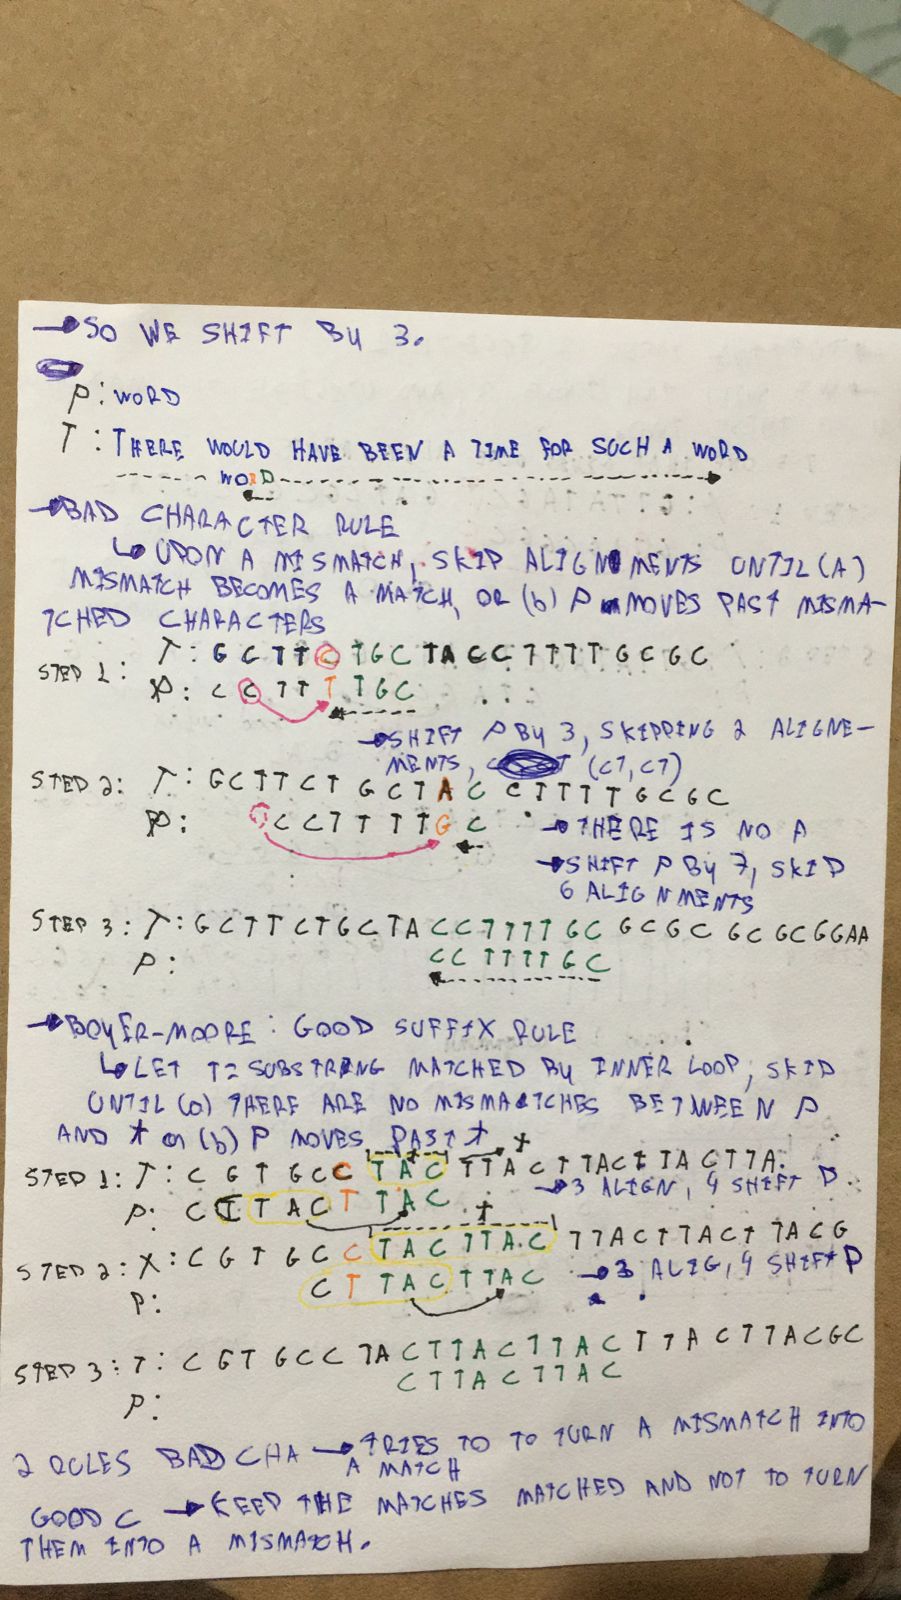 →SO WE SHIFT BY 3.
P: WORD
T: THERE WOULD HAVE BEEN A TIME FOR SUCH A WORD
WORD
→BAD CHARACTER RULE
↳ UPON A MISMATCH, SKIP ALIGNMENTS UNTIL (A)
MISMATCH BECOMES A MATCH, OR (b) P MOVES PAST MISMA-
TCHED CHARACTERS
STEP 1: T: G C T T C T G C T A C C T T T T G C G C
P: C C T T T T G C
→SHIFT P BY 3, SKIPPING 2 ALIGNE-
MENTS, (CT, CT)
STEP 2: T: G C T T C T G C T A C C T T T T G C G C
P: C C T T T T G C →THERE IS NO A
→SHIFT P BY 7, SKIP
6 ALIGNMENTS
STEP 3: T: G C T T C T G C T A C C T T T T G C G C G C G C G C G G A A
P: C C T T T T G C
→BOYER-MOORE: GOOD SUFFIX RULE
↳LET T= SUBSTRING MATCHED BY INNER LOOP, SKIP
UNTIL (a) THERE ARE NO MISMATCHES BETWEEN P
AND t or (b) P MOVES PAST t
t t
STEP 1: T: C G T G C C T A C T T A C T T A C T T A C T T A
P: C T T A C T T A C →3 ALIGN, 4 SHIFT P
t
STEP 2: X: C G T G C C T A C T T A C T T A C T T A C T T A C G
P: C T T A C T T A C →3 ALIG, 4 SHIFT P
STEP 3: T: C G T G C C T A C T T A C T T A C T T A C T T A C G C
P: C T T A C T T A C
2 RULES BAD CHA →TRIES TO TO TURN A MISMATCH INTO
A MATCH
GOOD C →KEEP THE MATCHES MATCHED AND NOT TO TURN
THEM INTO A MISMATCH.